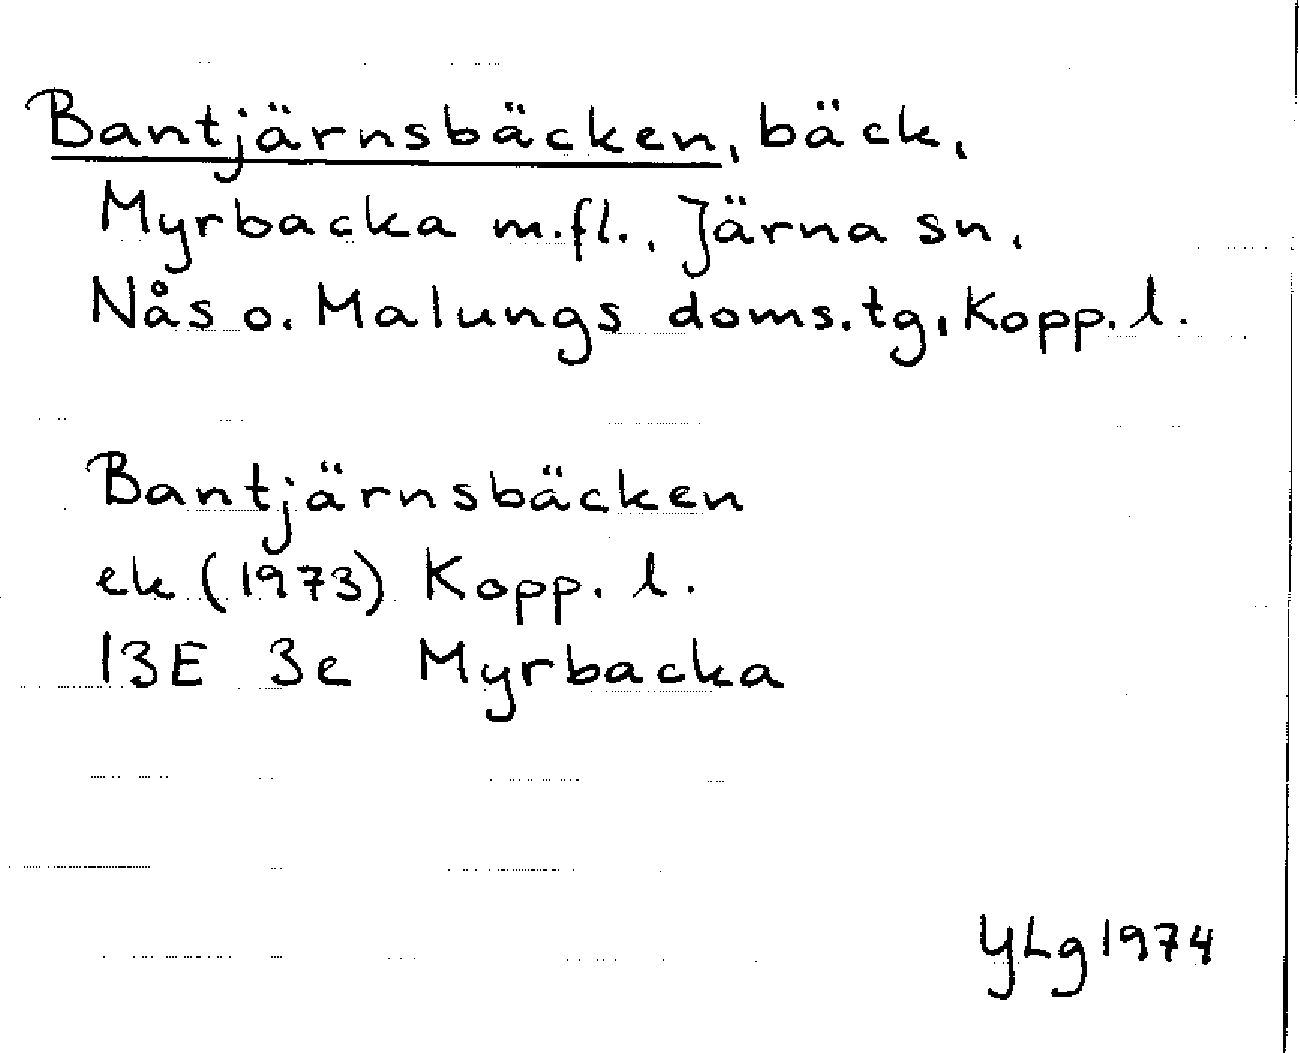 Bantjärnsbäcken, bäck,
Myrbacka m.fl., Järna sn,
Nås o. Malungs doms.tg, Kopp. l.
Bantjärnsbäcken
ek (1973) Kopp. l.
13E 3e Myrbacka
YLg 1974